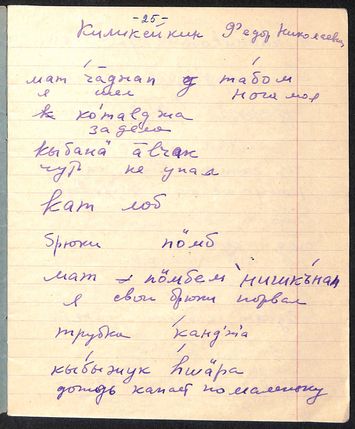 -25-
Киликейкин Фёдор Николаевич
мат чāднап д табом
я шел нога моя
к ко́тавджа
задела
кыбанӓ āвчак
чуть не упал
кат лоб
брюки пӧмб
мат пӧмбем нишкъ́нап
я свои брюки порвал
трубка кандж̓а
кыбыжук һшӓра
дождь капает помаленьку